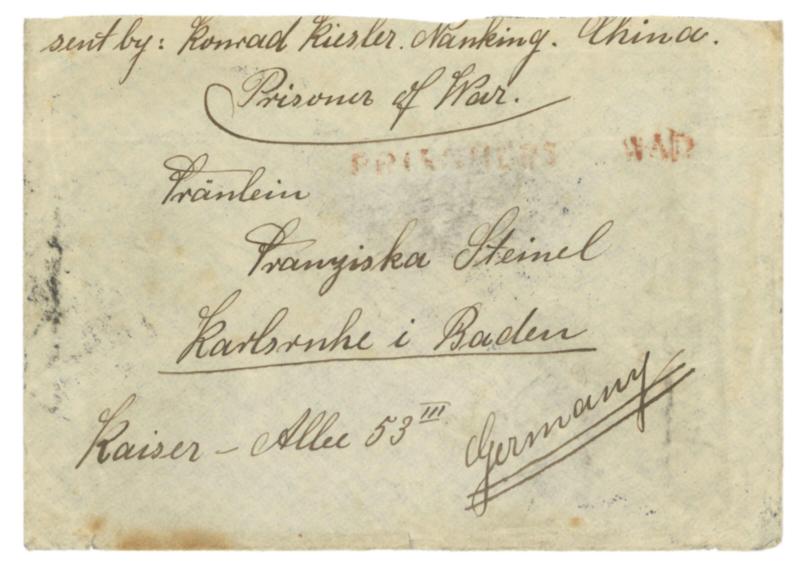 sent by: Konrad Kiesler. Nanking. China.
Prisoner of War.
PRISONERS WAR
Fräulein
Franziska Steinel
Karlsruhe i Baden
Kaiser - Allee 53 III
Germany